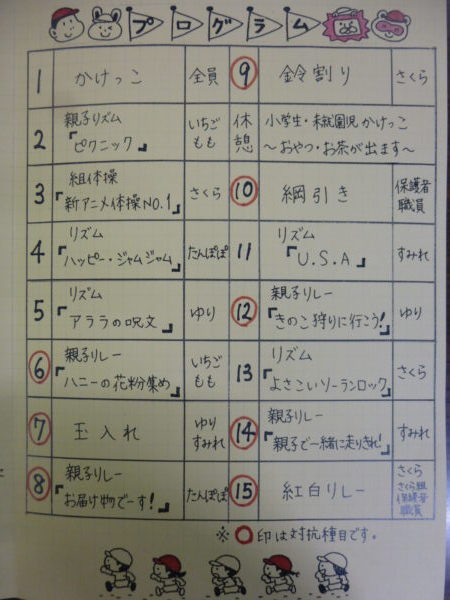 プログラム
1 かけっこ 全員
2 親子リズム
『ピクニック』 いちご
もも
3 組体操
『新アニメ体操NO.1』 さくら
4 リズム
『ハッピー・ジャムジャム』 たんぽぽ
5 リズム
『アララの呪文』 ゆり
6 親子リレー
『ハニーの花粉集め』 いちご
もも
7 玉入れ ゆり
すみれ
8 親子リレー
『お届け物でーす!』 たんぽぽ
9 鈴割り さくら
休憩 小学生・未就園児かけっこ
～おやつ・お茶が出ます～
10 綱引き 保護者
職員
11 リズム
『U.S.A』 すみれ
12 親子リレー
『きのこ狩りに行こう!』 ゆり
13 リズム
『よさこいソーランロック』 さくら
14 親子リレー
『親子で一緒に走りきれ!』 すみれ
15 紅白リレー さくら
さくら組
保護者
職員
※○印は対抗種目です。